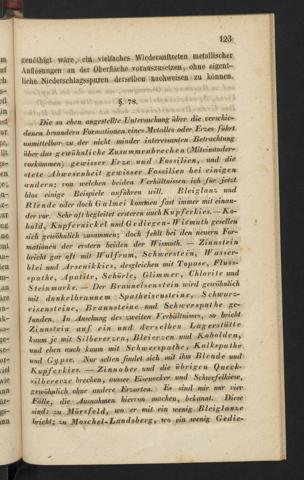 123
genöthigt wäre, ein vielfaches Wiederanftreten metallischer
Auflösungen an der Oberfläche vorauszusetzen, ohne eigent-
liche Niederschlagsspuren derselben nachweisen zu können.
§. 78.
Die so eben angestellte Untersuchung über die verschie-
denen besondern Formationen eines Metalles oder Erzes führt
unmittelbar zu der nicht minder interessanten Betrachtung
über das gewöhnliche Zusammenbrechen (Miteinander-
vorkommen) gewisser Erze und Fossilien, und die
stete Abwesenheit gewisser Fossilien bei einigen
andern; von welchen beiden Verhältnissen ich für jetzt
blos einige Beispiele anführen will. Bleiglanz und
Blende oder doch Galmei kommen fast immer mit einan-
der vor. Sehr oft begleitet ersteren auch Kupferkies. — Ko-
bold, Kupfernickel und Gediegen-Wismuth gesellen
sich gewöhnlich zusammen; doch fehlt bei den neuern For-
mationen der ersten beiden der Wismuth. — Zinnstein
bricht gar oft mit Wolfram, Schwerstein, Wasser-
blei und Arsenikkies, desgleichen mit Topase, Fluss-
spathe, Apatite, Schörle, Glimmer, Chlorite und
Steinmarke. — Der Brauneisenstein wird gewöhnlich
mit dunkelbraunem Spatheisensteine, Schwarz-
eisensteine, Braunsteine und Schwerspathe ge-
funden. In Ansehung des zweiten Verhältnisses, so bricht
Zinnstein auf ein und derselben Lagerstätte
kaum je mit Silbererz, Bleierzen und Kobolden,
und eben auch kaum mit Schwerspathe, Kalkspathe
und Gyps. Nur selten findet sich mit ihm Blende und
Kupferkies. — Zinnober und die übrigen Queck-
silbererze brechen, ausser Eisenocker und Schwefelkiese,
gewöhnlich ohne andere Erzarten. Es sind mir nur vier
Fälle, die Ausnahmen hiervon machen, bekannt. Diese
sind: zu Mörsfeld, wo er mit ein wenig Bleiglanze
bricht; zu Moschel-Landsberg, wo ein wenig Gedie-